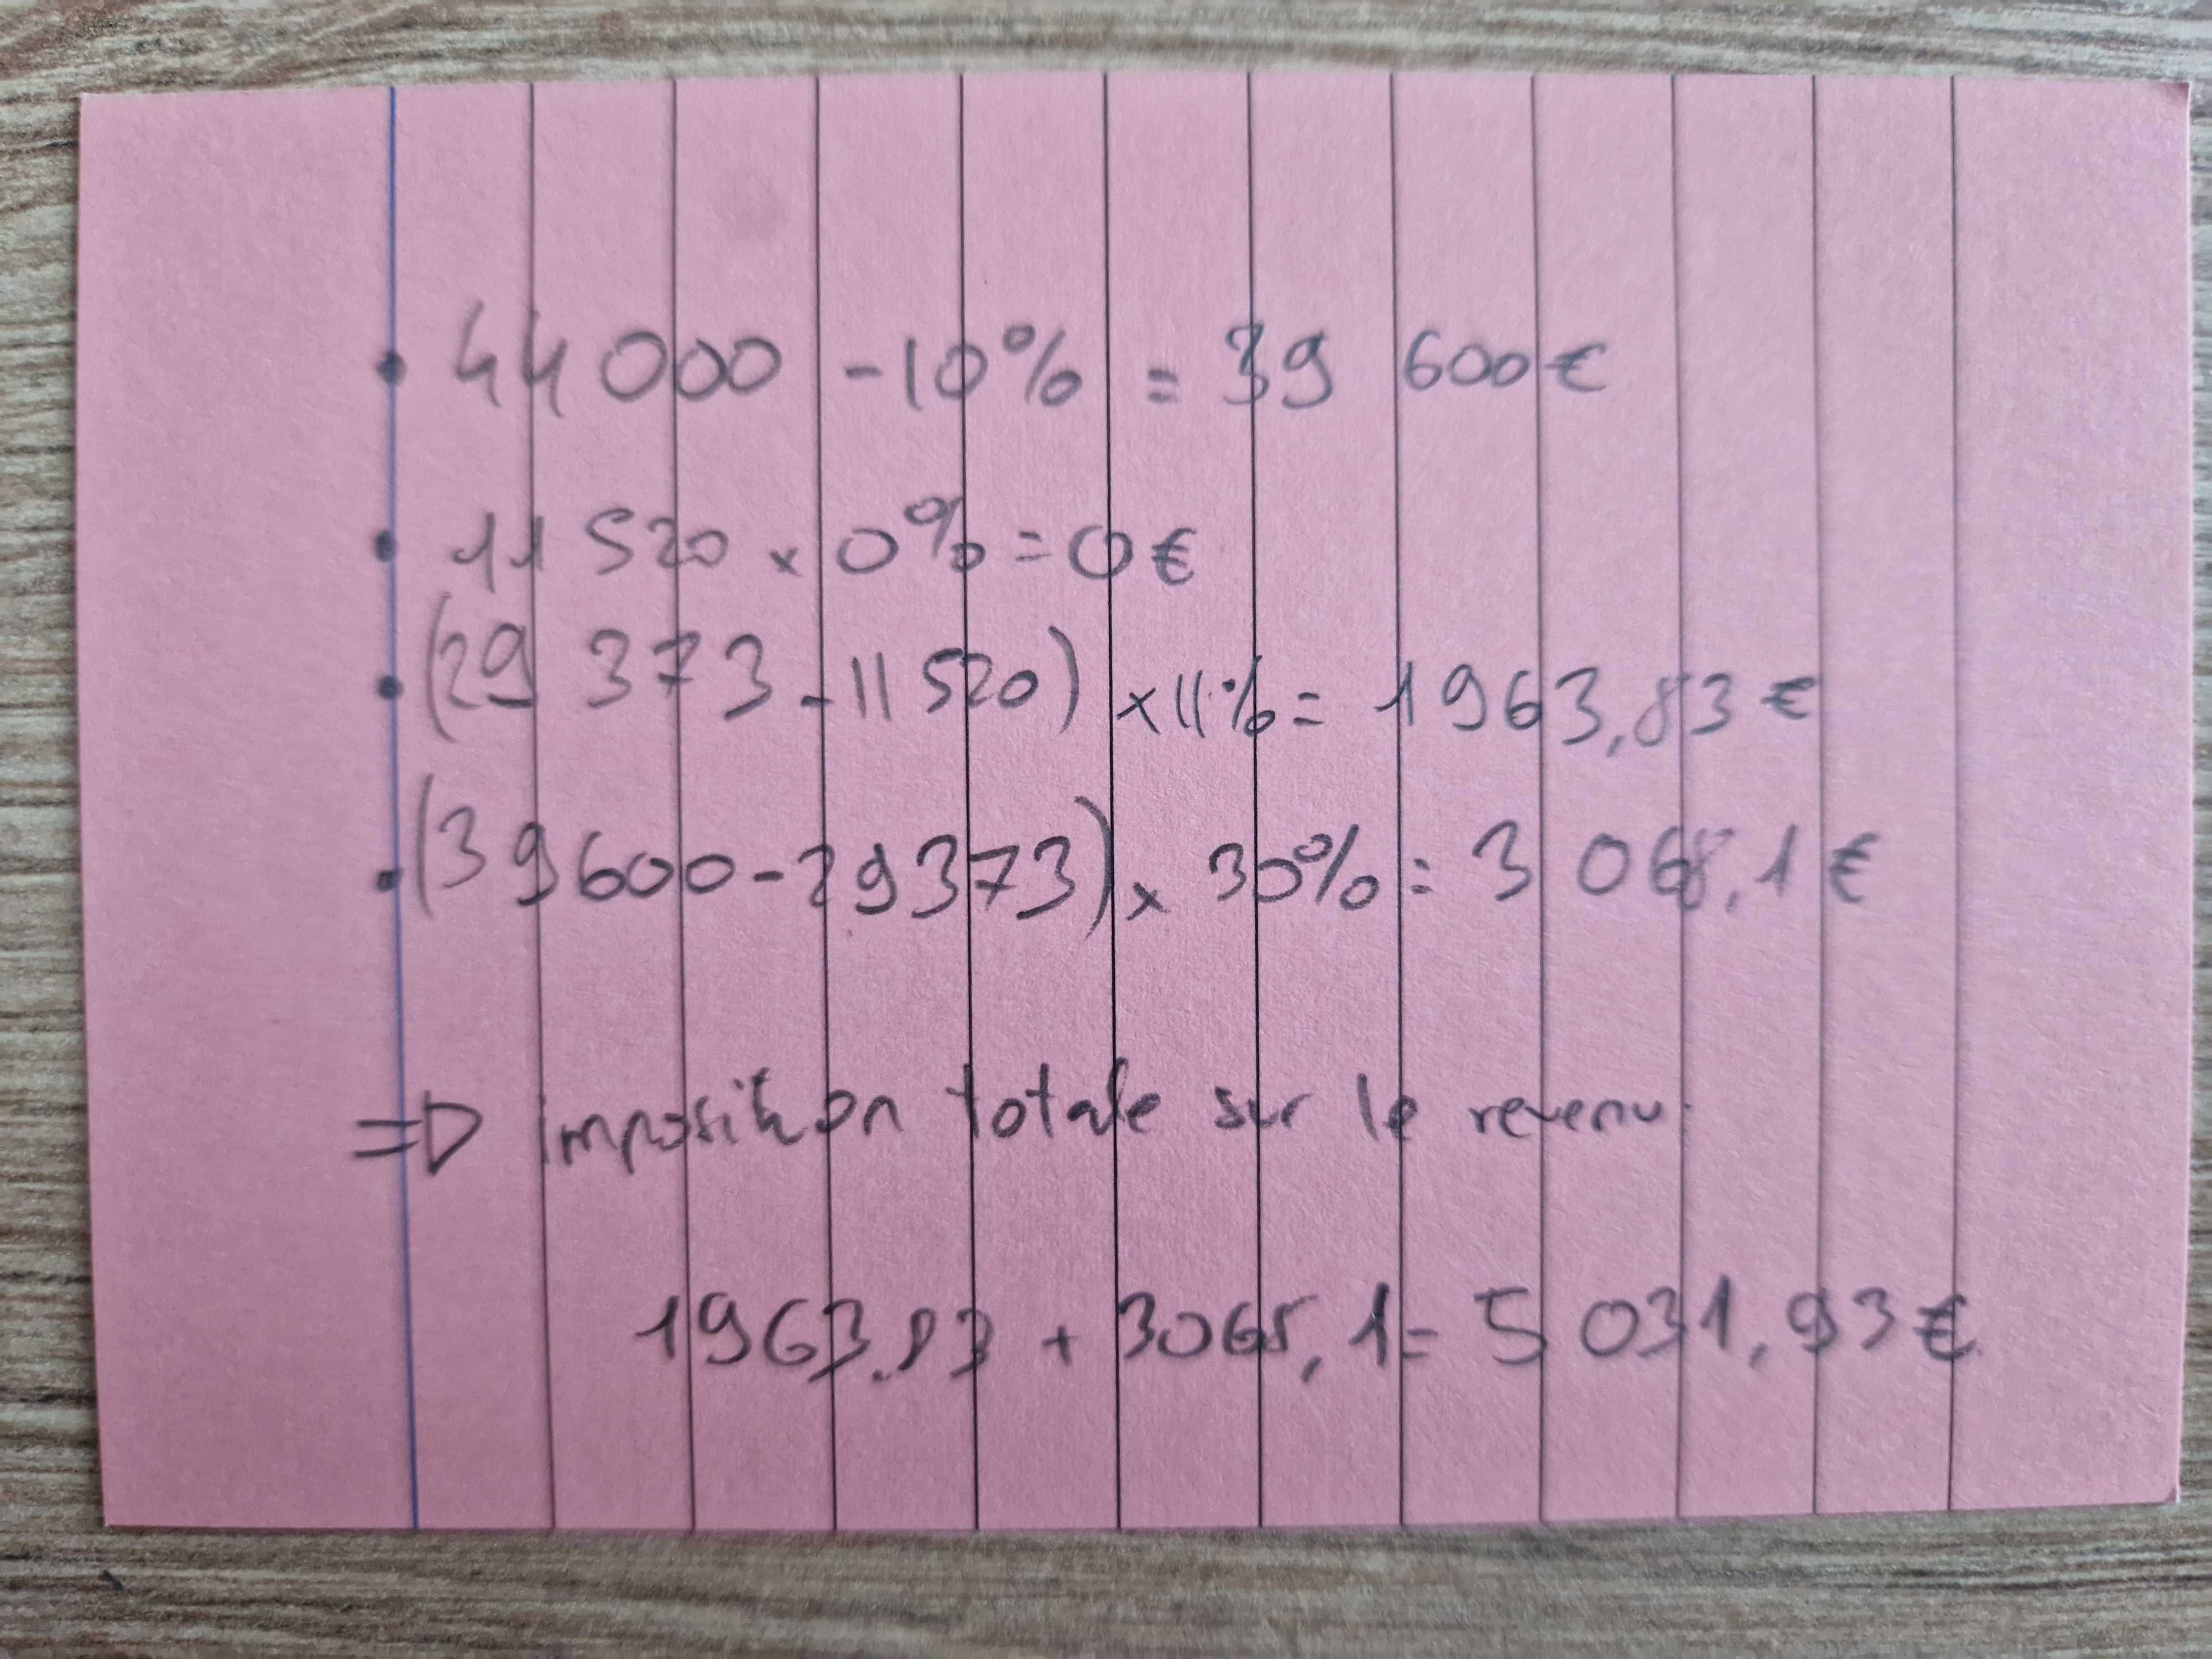 • 44 000 - 10% = 39 600 €
• 11 520 x 0% = 0 €
• (29 373 - 11 520) x 11% = 1 963,83 €
• (39600 - 29373) x 30% = 3 068,1 €
=> imposition totale sur le revenu
1963,83 + 3068,1 = 5 031,93 €